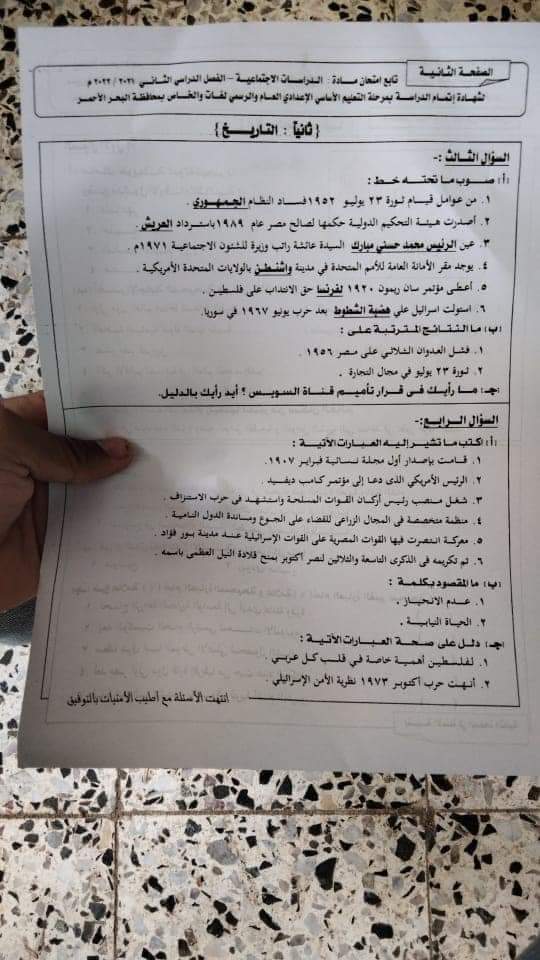 الصفحة الثانية
تابع امتحان مادة : الدراسات الاجتماعية – الفصل الدراسي الثاني ٢٠٢١ / ٢٠٢٢ م
لشهادة إتمام الدراسة بمرحلة التعليم الأساسي الإعدادي العام والرسمي لغات والخاص بمحافظة البحر الأحمر
{ ثانياً : التاريخ }
السؤال الثالث :-
أ: صوب ما تحته خط :
١. من عوامل قيام ثورة ٢٣ يوليو ١٩٥٢ فساد النظام الجمهوري .
٢. أصدرت هيئة التحكيم الدولية حكمها لصالح مصر عام ١٩٨٩ باسترداد العريش .
٣. عين الرئيس محمد حسني مبارك السيدة عائشة راتب وزيرة للشئون الاجتماعية ١٩٧١م .
٤. يوجد مقر الأمانة العامة للأمم المتحدة في مدينة واشنطن بالولايات المتحدة الأمريكية .
٥. أعطى مؤتمر سان ريمون ١٩٢٠ لفرنسا حق الانتداب على فلسطين .
٦. استولت اسرائيل على هضبة الشطوط بعد حرب يونيو ١٩٦٧ في سوريا.
(ب) ما النتائج المترتبة على :
١. فشل العدوان الثلاثي على مصر ١٩٥٦ .
٢. ثورة ٢٣ يوليو في مجال التجارة .
جـ: ما رأيك في قرار تأميم قناة السويس ؟ أيد رأيك بالدليل.
السؤال الرابع:-
أ: اكتب ما تشير إليه العبارات الآتية :
١. قامت بإصدار أول مجلة نسائية فبراير ١٩٠٧.
٢. الرئيس الأمريكي الذى دعا إلى مؤتمر كامب ديفيد .
٣. شغل منصب رئيس أركان القوات المسلحة واستشهد فى حرب الاستنزاف .
٤. منظمة متخصصة فى المجال الزراعى للقضاء على الجوع ومساندة الدول النامية .
٥. معركة انتصرت فيها القوات المصرية على القوات الإسرائيلية عند مدينة بور فؤاد .
٦. تم تكريمه فى الذكرى التاسعة والثلاثين لنصر أكتوبر بمنح قلادة النيل العظمى باسمه .
(ب) ما المقصود بكلمة :
١. عدم الانحياز .
٢. الحياة النيابية .
جـ: دلل على صحة العبارات الآتية :
١. لفلسطين أهمية خاصة في قلب كل عربي .
٢. أنهت حرب أكتوبر ١٩٧٣ نظرية الأمن الإسرائيلي .
انتهت الأسئلة مع أطيب الأمنيات بالتوفيق